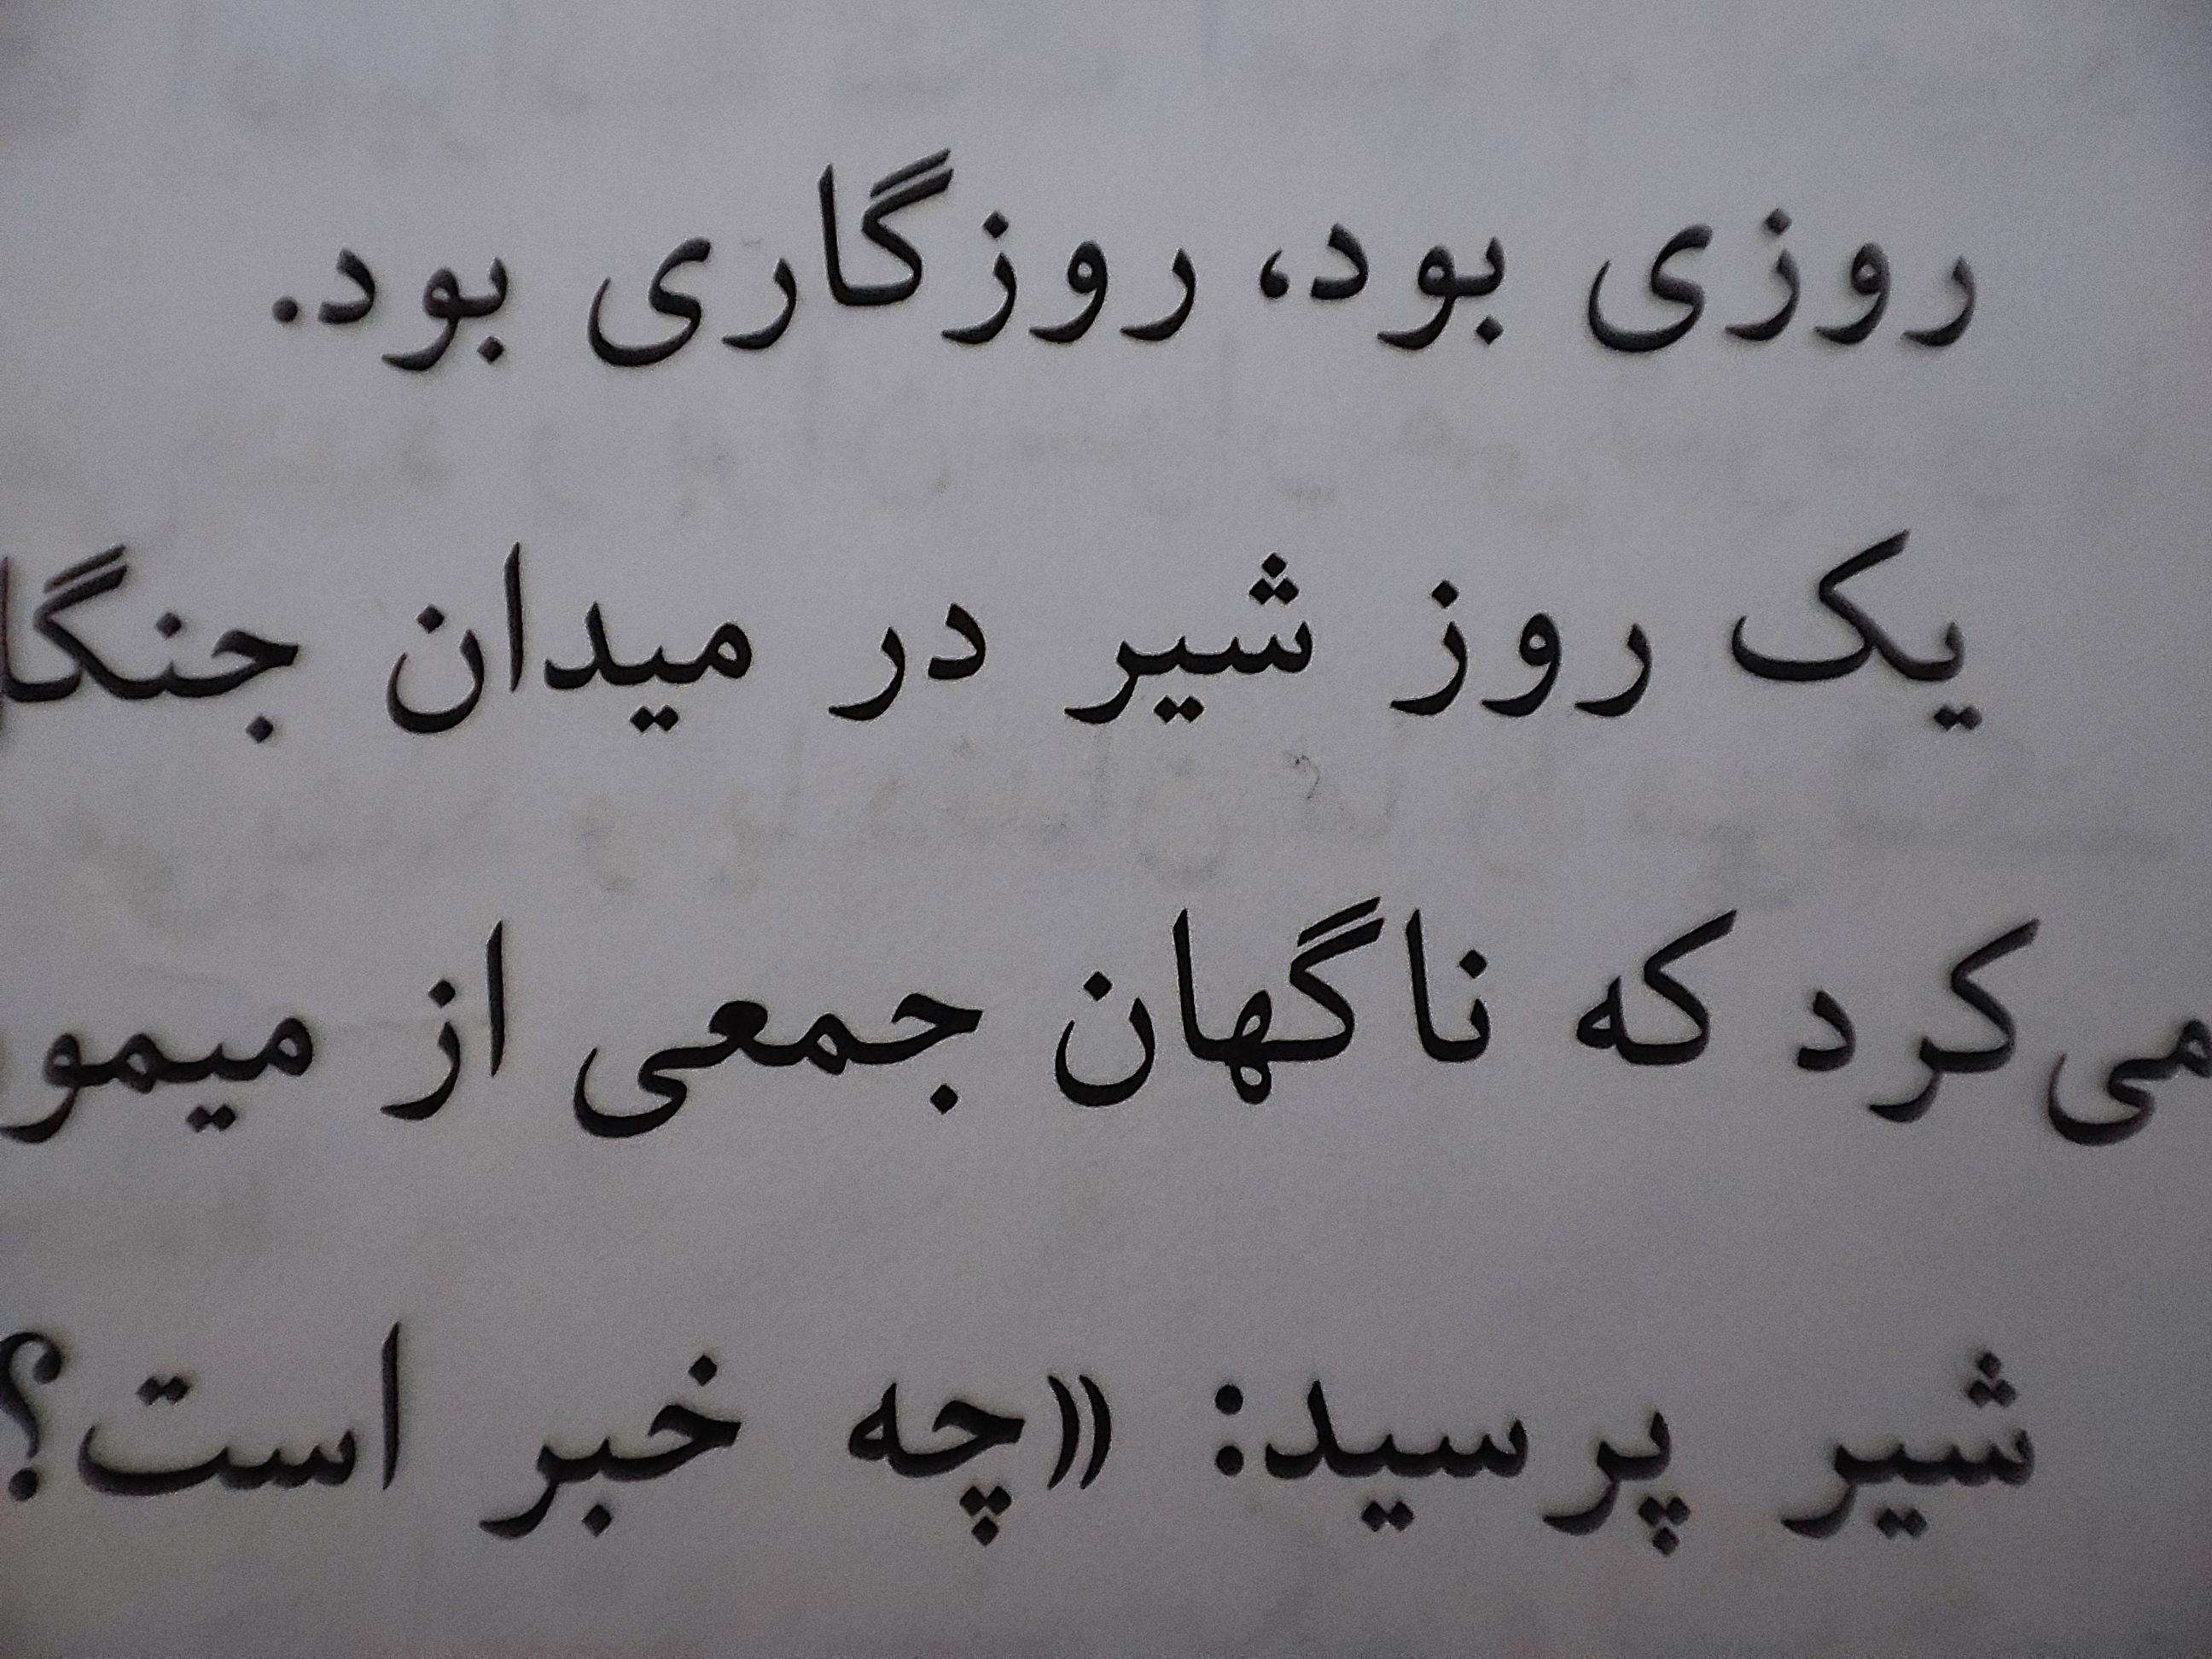 روزی بود، روزگاری بود.
یک روز شیر در میدان
می‌کرد که ناگهان جمعی از
شیر پرسید: «چه خبر است؟